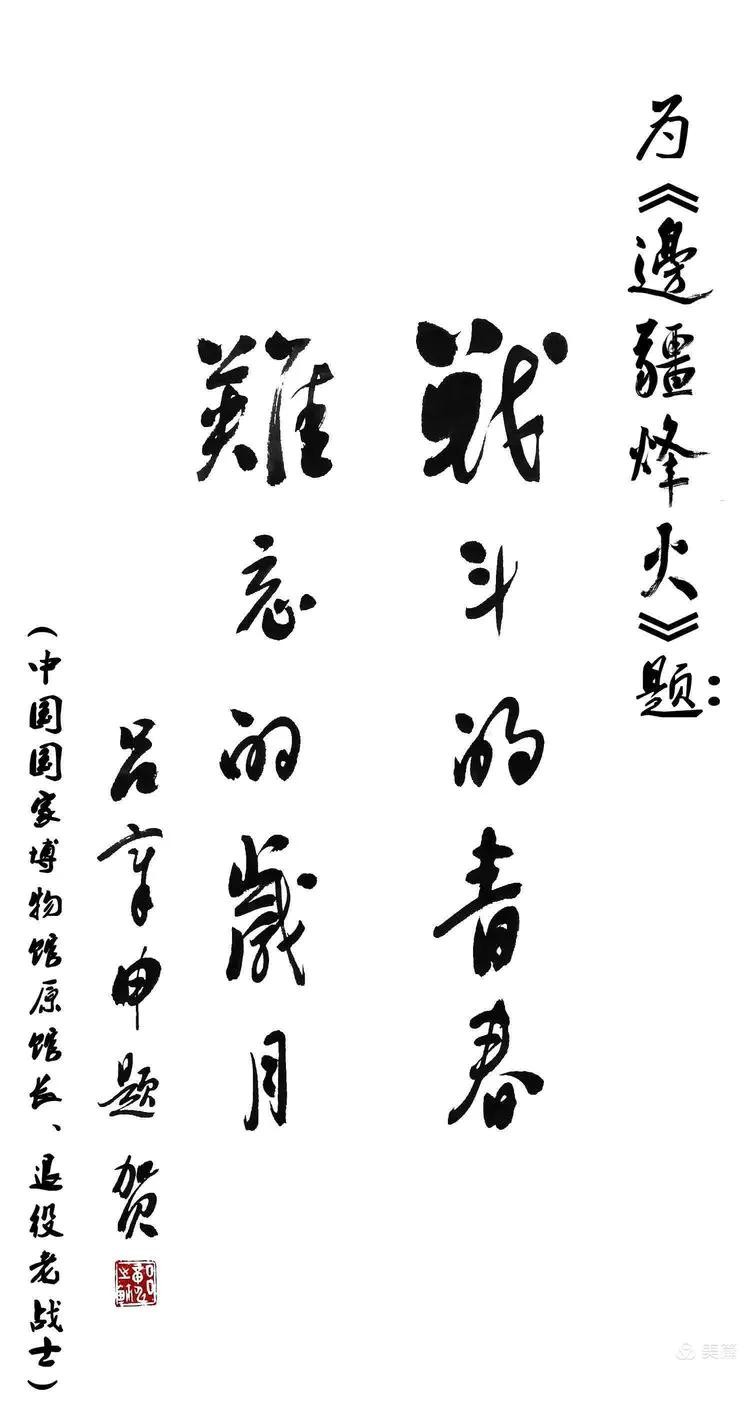 为《邊疆烽火》题：
戰斗的青春
難忘的歲月
吕章申题贺
（中国国家博物馆原馆长、退役老战士）
美篇